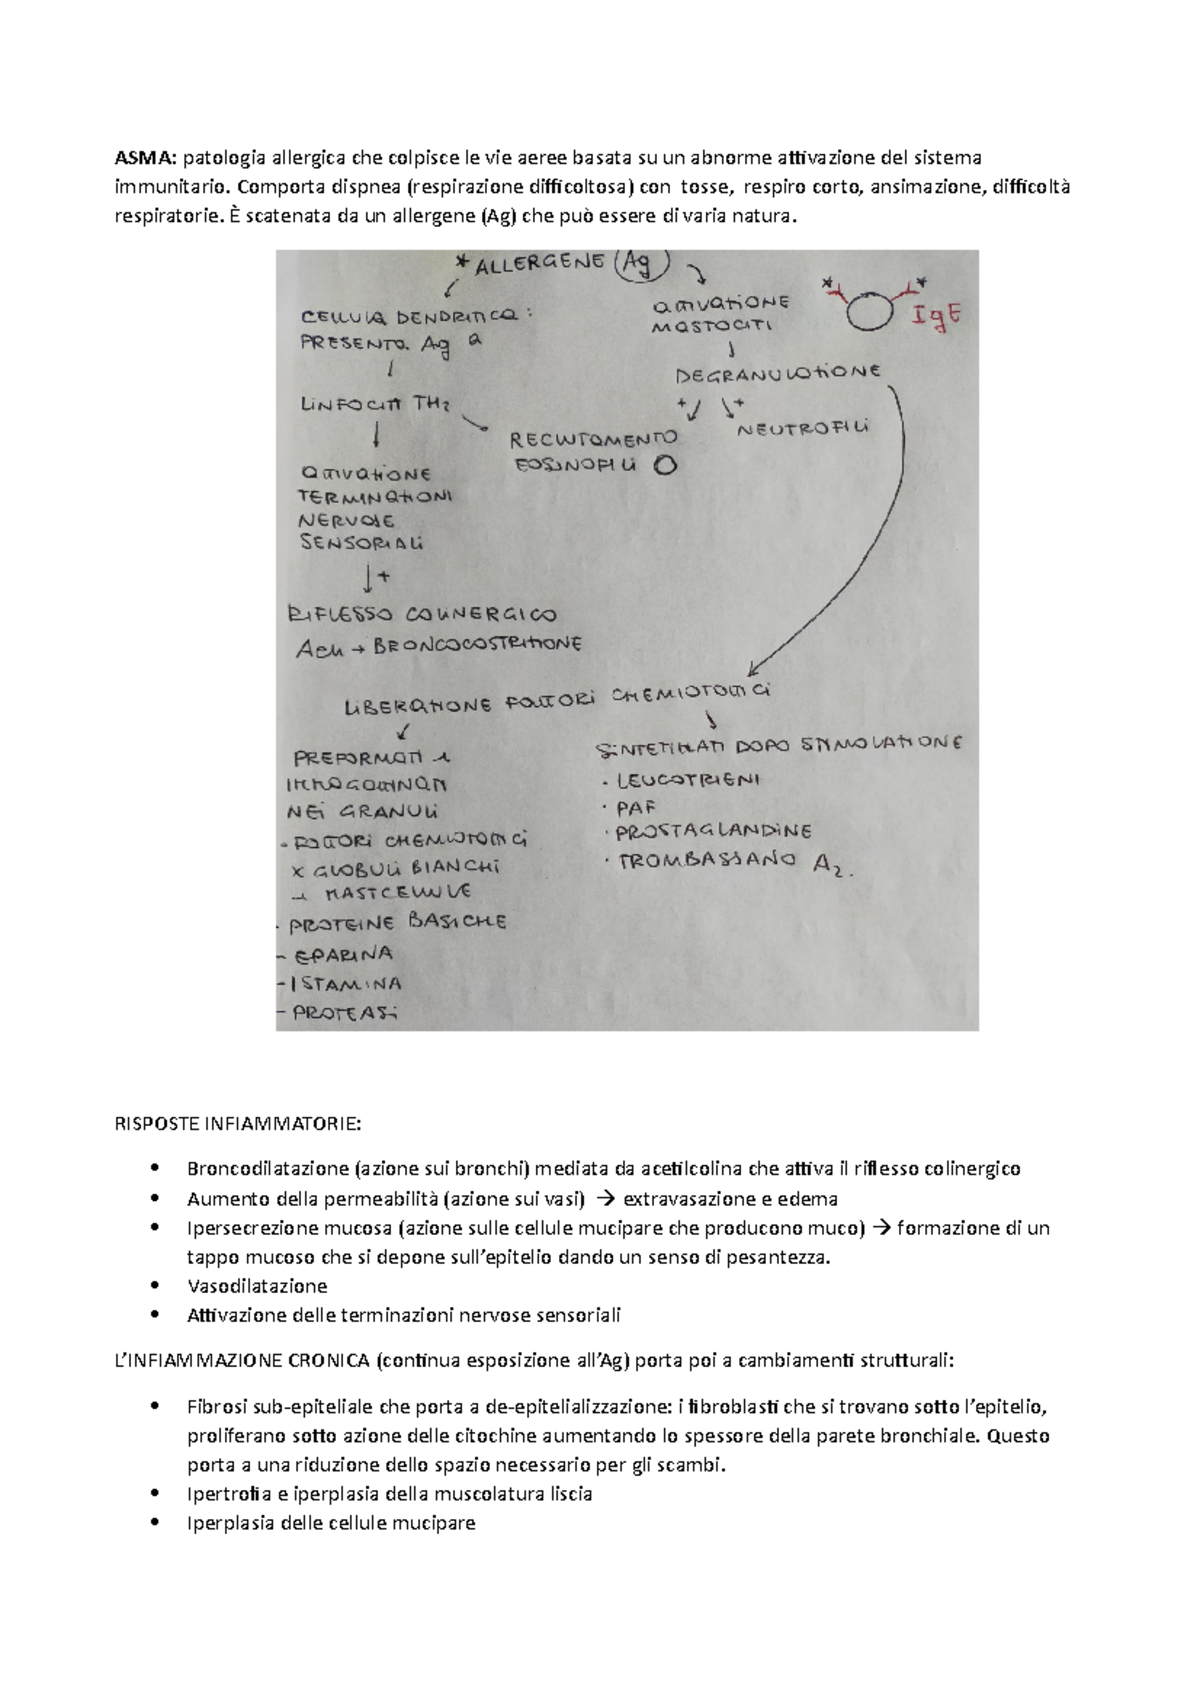 ASMA: patologia allergica che colpisce le vie aeree basata su un abnorme attivazione del sistema
immunitario. Comporta dispnea (respirazione difficoltosa) con tosse, respiro corto, ansimazione, difficoltà
respiratorie. È scatenata da un allergene (Ag) che può essere di varia natura.
* ALLERGENE (Ag)
CELLULA DENDRITICA :
PRESENTA Ag a
LINFOCITI TH2
ATTIVAZIONE
TERMINAZIONI
NERVOSE
SENSORIALI
+
RIFLESSO COLINERGICO
ACh → BRONCOCOSTRIZIONE
ATTIVAZIONE
MASTOCITI
* *
IgE
DEGRANULAZIONE
+ +
RECLUTAMENTO
EOSINOFILI
NEUTROFILI
LIBERAZIONE FATTORI CHEMIOTATTICI
PREFORMATI e
IMMAGAZZINATI
NEI GRANULI
- FATTORI CHEMIOTATTICI
x GLOBULI BIANCHI
e MASTCELLULE
- PROTEINE BASICHE
- EPARINA
- ISTAMINA
- PROTEASI
SINTETIZZATI DOPO STIMOLAZIONE
· LEUCOTRIENI
· PAF
· PROSTAGLANDINE
· TROMBASSANO A2.
RISPOSTE INFIAMMATORIE:
• Broncodilatazione (azione sui bronchi) mediata da acetilcolina che attiva il riflesso colinergico
• Aumento della permeabilità (azione sui vasi) → extravasazione e edema
• Ipersecrezione mucosa (azione sulle cellule mucipare che producono muco) → formazione di un
tappo mucoso che si depone sull’epitelio dando un senso di pesantezza.
• Vasodilatazione
• Attivazione delle terminazioni nervose sensoriali
L’INFIAMMAZIONE CRONICA (continua esposizione all’Ag) porta poi a cambiamenti strutturali:
• Fibrosi sub-epiteliale che porta a de-epitelializzazione: i fibroblasti che si trovano sotto l’epitelio,
proliferano sotto azione delle citochine aumentando lo spessore della parete bronchiale. Questo
porta a una riduzione dello spazio necessario per gli scambi.
• Ipertrofia e iperplasia della muscolatura liscia
• Iperplasia delle cellule mucipare